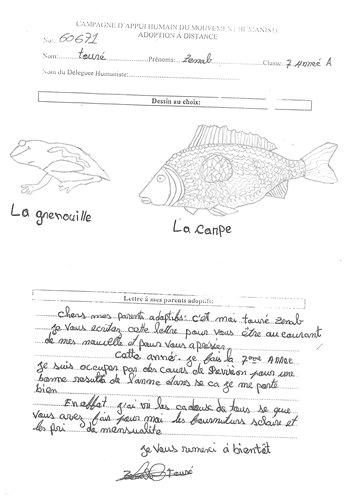 CAMPAGNE D'APPUI HUMAIN DU MOUVEMENT HUMANISTE
ADOPTION À DISTANCE
No: 60671
Nom: touré Prénoms: Zenab Classe: 7 année A
Nom du Délégué Humaniste:
Dessin au choix:
La grenouille
La carpe
Lettre à mes parents adoptifs:
chers mes parents adoptifs: c'est moi touré Zenab
je vous écritez cette lettre pour vous être au courant
de mes nouvelle et pour vous
Cette année. je fais la 7ème Année
je suis occuper par des caues de Revision pour une
bonne resulta de l'anné dans se ca je me porte
bien
En effet j'ai vu les cadeuse de tous se que
vous avez fais pour moi les fournitures sclaire et
les pri de mensualite
je vous remerci à bientôt
Zenab Touré